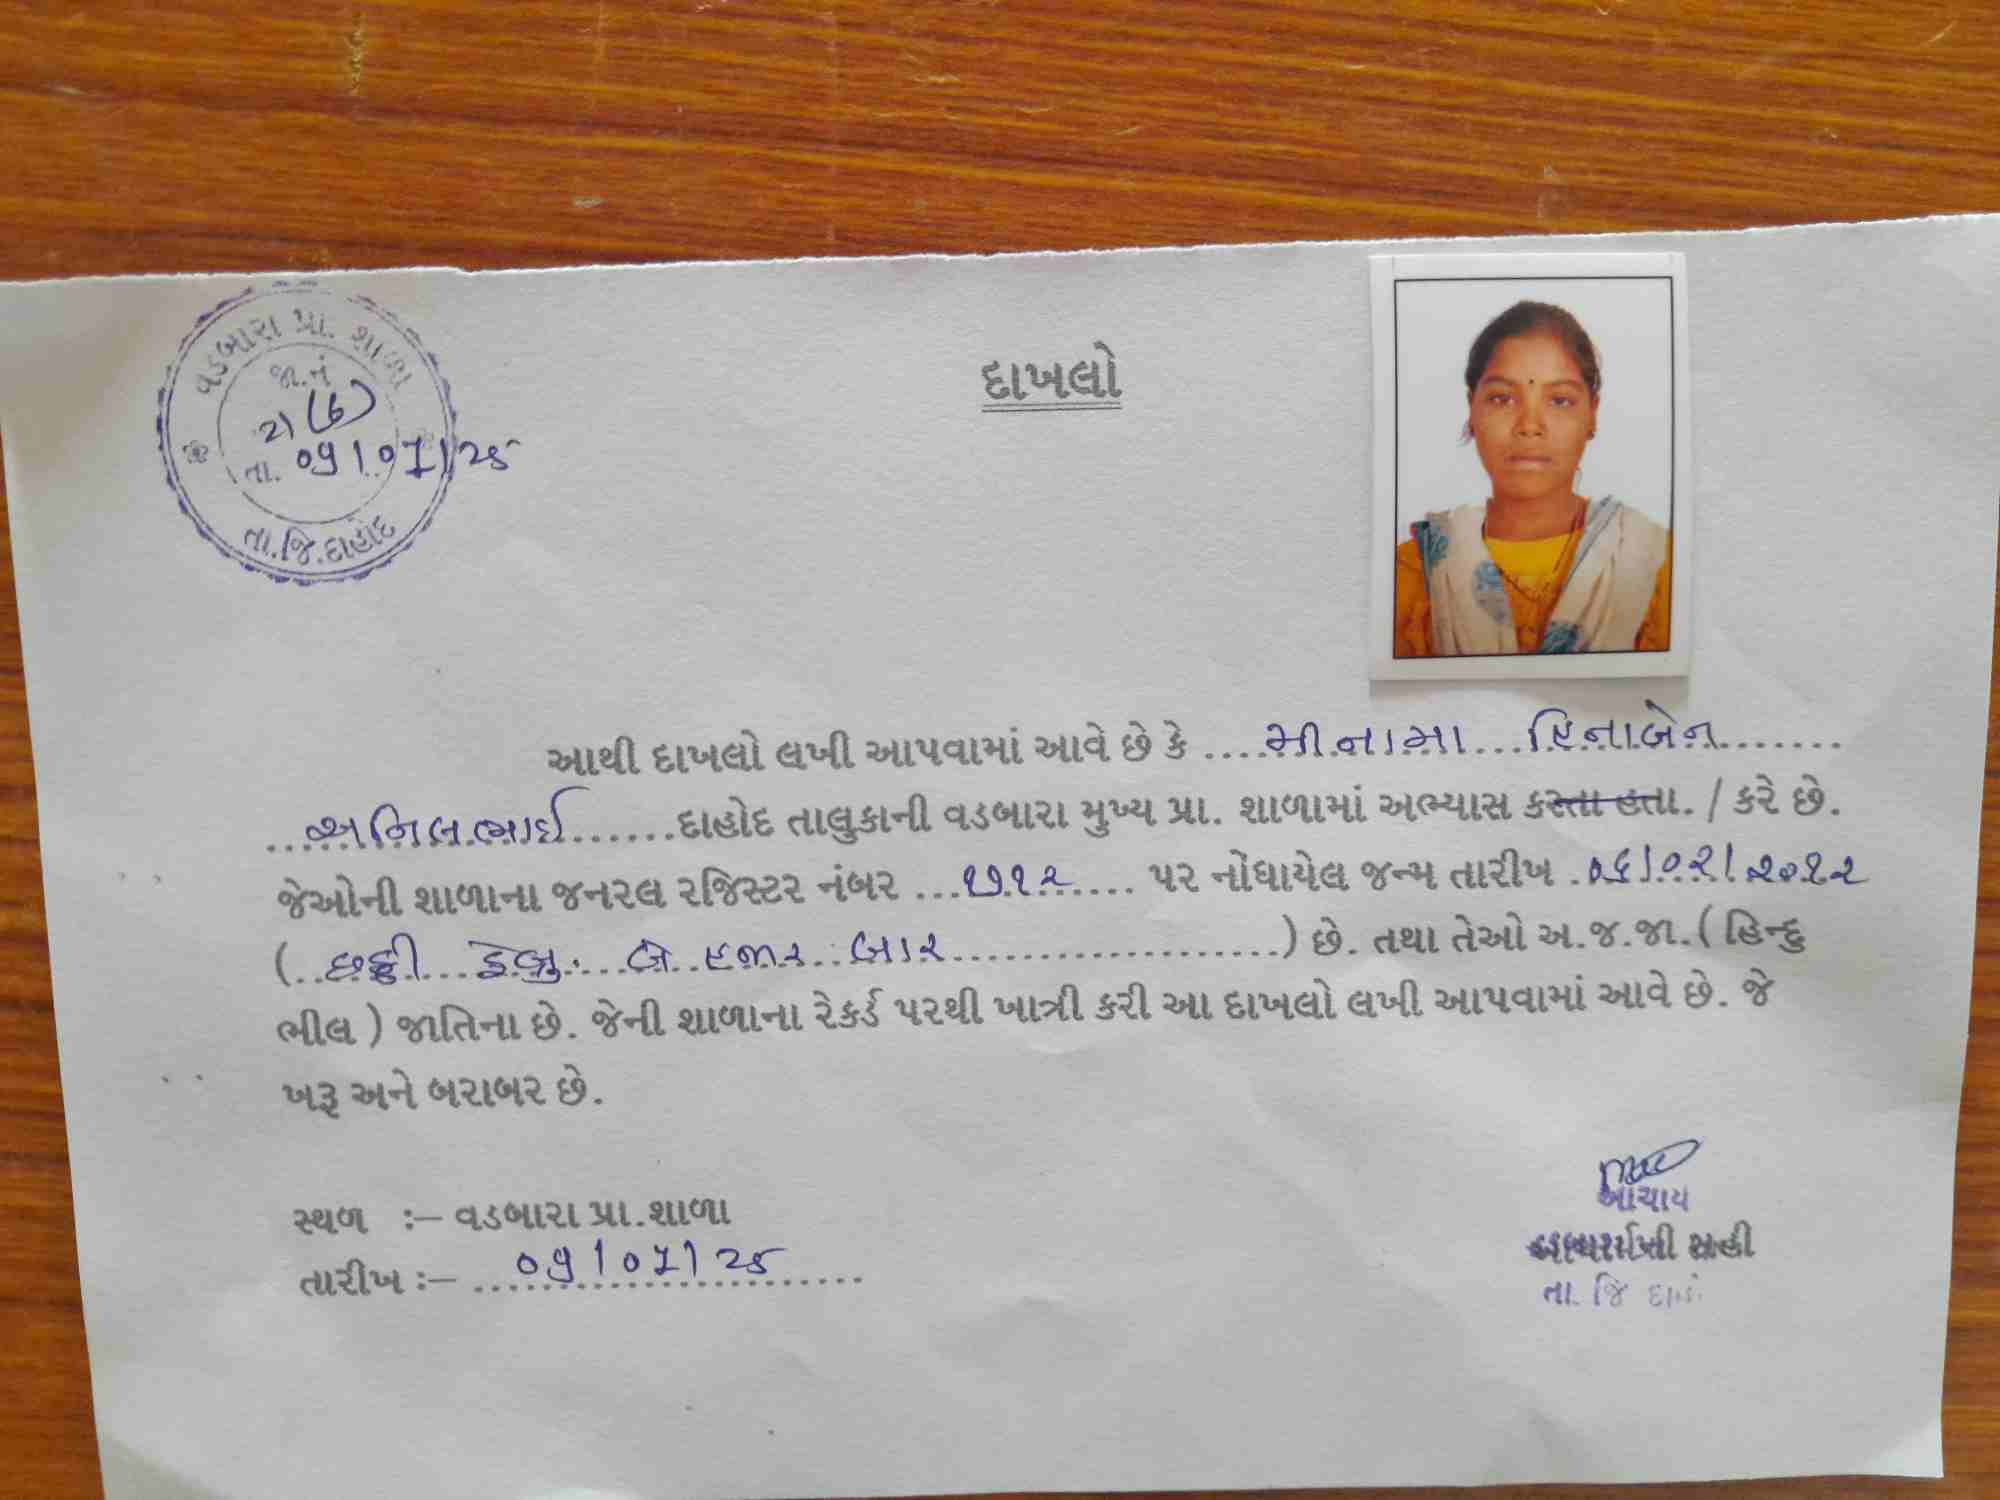 વડબારા પ્રા. શાળા
જા.નં
તા. 09/07/25
તા.જિ.દાહોદ
દાખલો
આથી દાખલો લખી આપવામાં આવે છે કે ....મીનામા...હિનાબેન.......
...અનિલભાઈ......દાહોદ તાલુકાની વડબારા મુખ્ય પ્રા. શાળામાં અભ્યાસ કરતા હતા. / કરે છે.
જેઓની શાળાના જનરલ રજિસ્ટર નંબર ...૧૭૧૨.... પર નોંધાયેલ જન્મ તારીખ .૦૬/૦૨/૨૦૧૨
(..છઠ્ઠી...ફેબ્રુ....બે હજાર બાર...................) છે. તથા તેઓ અ.જ.જા. ( હિન્દુ
ભીલ ) જાતિના છે. જેની શાળાના રેકર્ડ પરથી ખાત્રી કરી આ દાખલો લખી આપવામાં આવે છે. જે
ખરૂ અને બરાબર છે.
સ્થળ :– વડબારા પ્રા.શાળા
તારીખ :– ...09/07/25......
આચાર્ય
સહી
તા. જિ